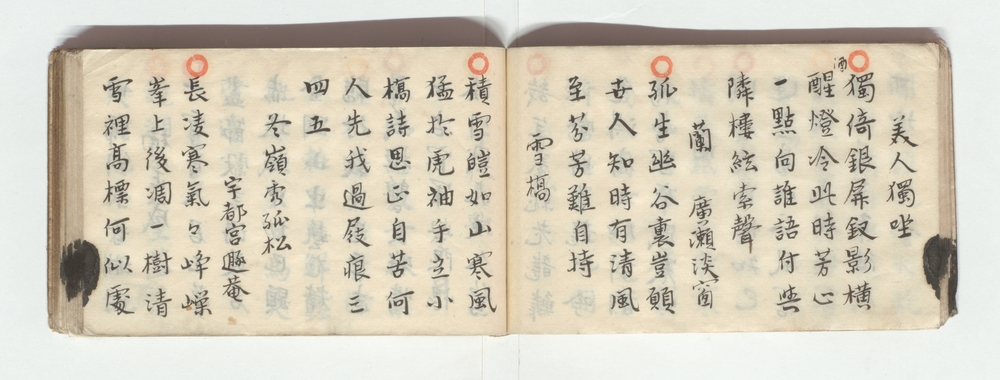 美人獨坐
獨倚銀屏釵影橫酒
醒燈冷此時芳心
一點向誰語付與
隣樓絃索聲
蘭　廣瀨淡窗
孤生幽谷裏豈願
世人知時有清風
至芬芳難自持
雪橋
積雪皚如山寒風
猛於虎袖手立小
橋詩思正自苦何
人先我過屐痕三
四五
冬嶺秀孤松
宇都宮遯菴
長凌寒氣々崢嶸
峯上後凋一樹清
雪裡高標何似處